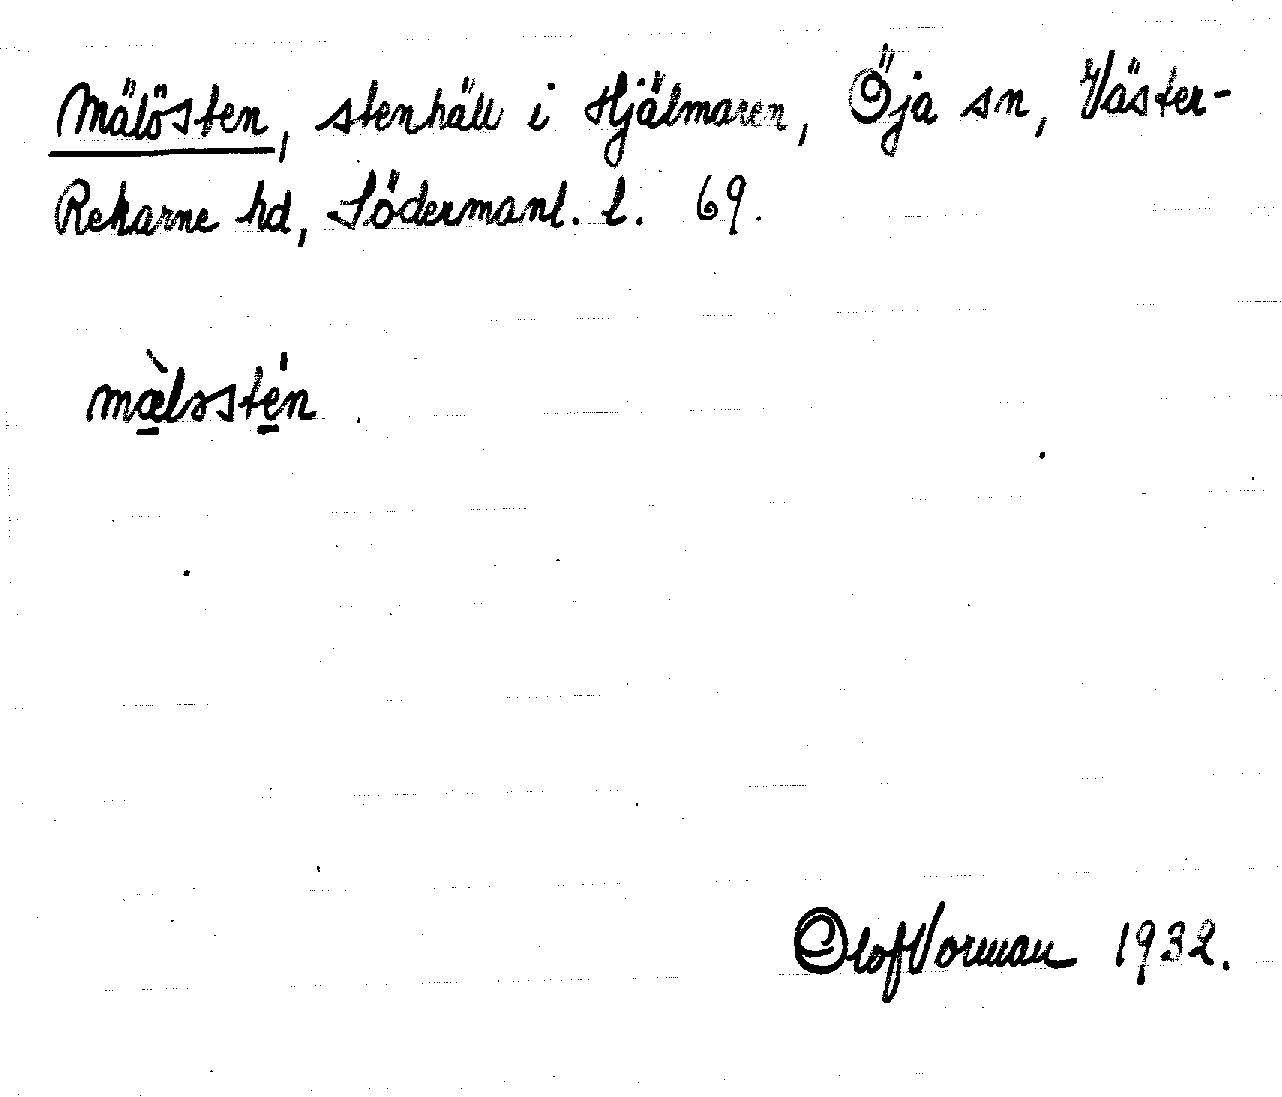 Mälösten, stenhäll i Hjälmaren, Öja sn, Väster-
Rekarne hd, Södermanl. l. 69.
mæ̠̀ləsté̠n
Olof Vorman 1932.